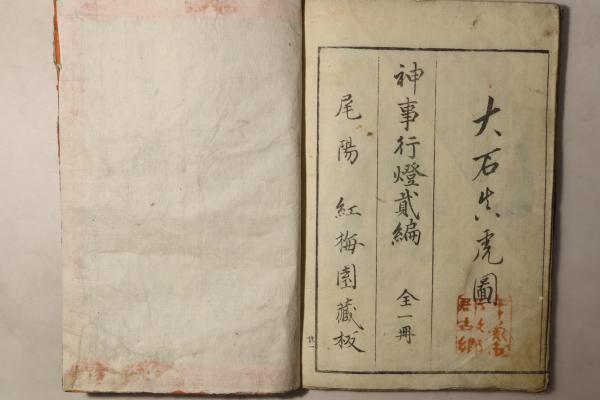 大石真虎圖
神事行燈貳編 全一冊
尾陽 紅梅園藏板